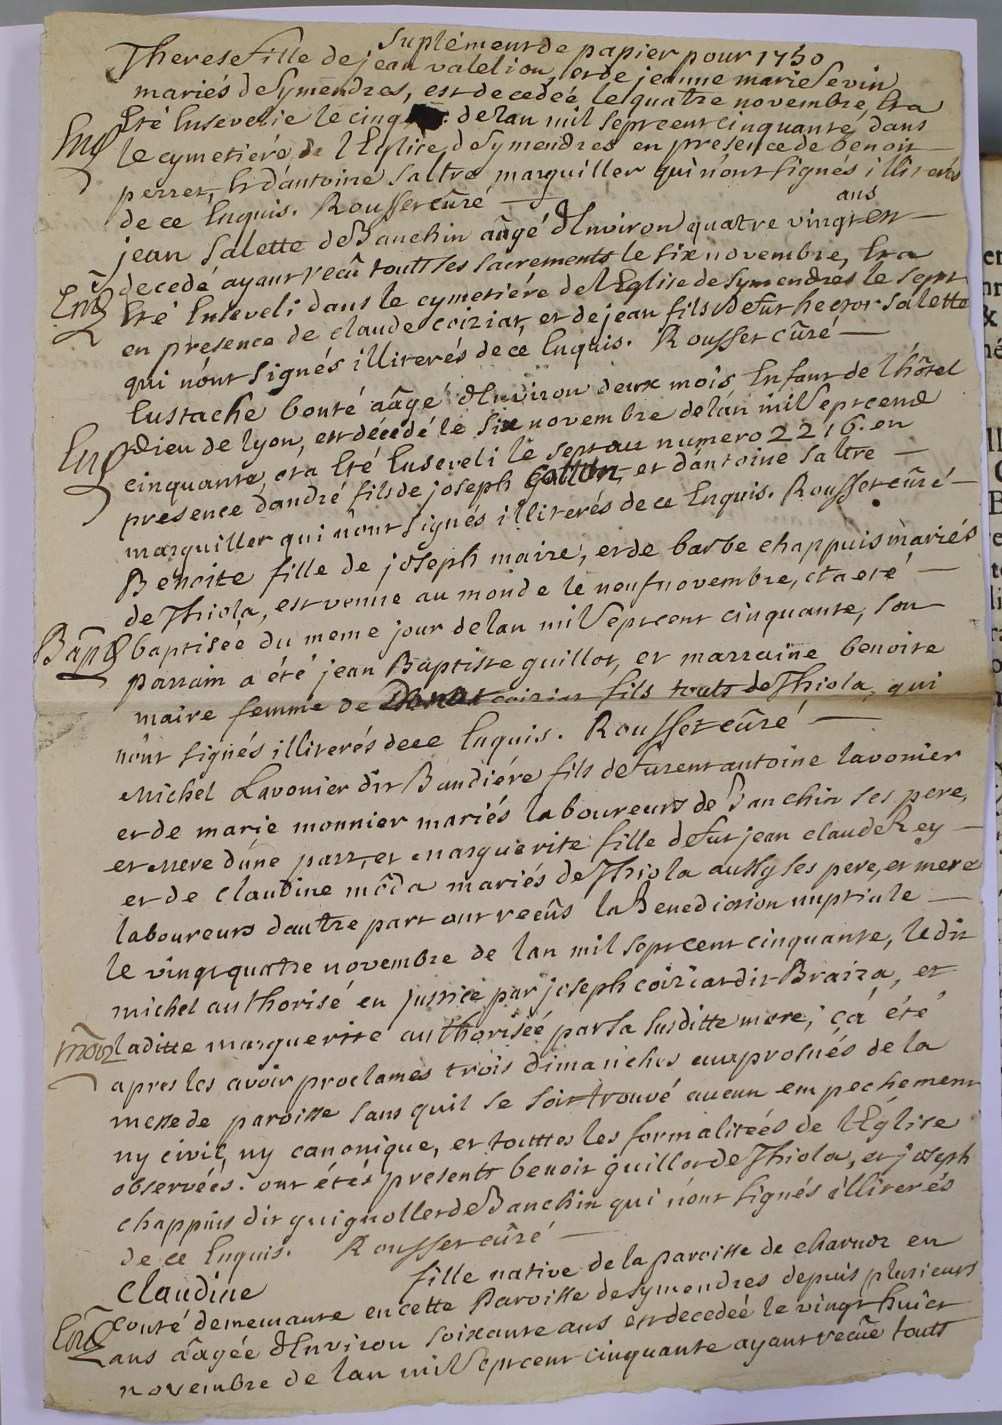 Suplément de papier pour 1750
Therese fille de jean valelion, et de jeanne marie Sevin
mariés de Symendres, est decedeé le quatre novembre, et a
été Ensevelie le cinq de lan mil sept cent cinquante, dans
Ent
le cymetiére de l'Eglise de Symendres en presence de benoit
perret, et d'antoine Saltre marguiller qui n'ont signés illiterés
de ce Enquis. Rousset cûré
ans
jean Salette de Banchin aâgé d'Environ quatre vingt
decedé ayant recû touts ses sacrements le six novembre, et a
Ent
Eté Enseveli dans le cymetiére de l'Eglise de Symendres le sept
en presence de claude coiziat, et de jean fils de fut hector Salette
qui n'ont signés illiterés de ce Enquis. Rousset Cûré
Eustache bonté aâgé d'Environ deux mois Enfant de l'hôtel
Dieu de lyon, est décédé le six novembre de l'an mil sept cend
Ent
cinquante, et a Eté Enseveli le sept au numero 2216. en
présence d'andré fils de joseph et d'antoine Saltre
marguiller qui n'ont signés illiterés de ce Enquis. Rousset cûré
Benoite fille de joseph maire, et de barbe chappuis mariés
de Thiola, est venue au monde le neuf novembre, et a eté
Bapt baptisée du meme jour de lan mil sept cent cinquante, son
parrain a été jean Baptiste guillot, et marraine benoite
maire femme de coiziat fils touts de Thiola, qui
n'ont signés illiterés de ce Enquis. Rousset cûré
Michel Lavonier dit Baudiére fils de furent antoine lavonier
et de marie monnier mariés laboureurs de Banchin ses pere,
et mere d'une part, et marguerite fille de fut jean claude Rey
et de claudine môda mariés de Thiola aussy ses pere, et mere
laboureurs d'autre part ont recûs la Benediction nuptiale
le vingt quatre novembre de lan mil sept cent cinquante, le dit
michel authorisé en justice par joseph coiziat dit Braiza, et
laditte marguerite authoriseé par sa susditte mere, ç'a été
apres les avoir proclamés trois dimanches aux prosnés de la
messe de paroisse sans quil se soit trouvé aucun empechement
ny civil, ny canonique, et touttes les formaliteés de l'Eglise
observeés. ont étés presents benoit guillot de Thiola, et joseph
chappuis dit guignollet de Banchin qui n'ont signés illiterés
de ce Enquis. Rousset cûré
Claudine fille native de la paroisse de charnoz en
Ent
conté demeurante en cette Paroisse de symendres depuis plusieurs
ans aâgée d'Environ soixante ans est decedeé le vingt huict
novembre de lan mil sept cent cinquante ayant recûe touts